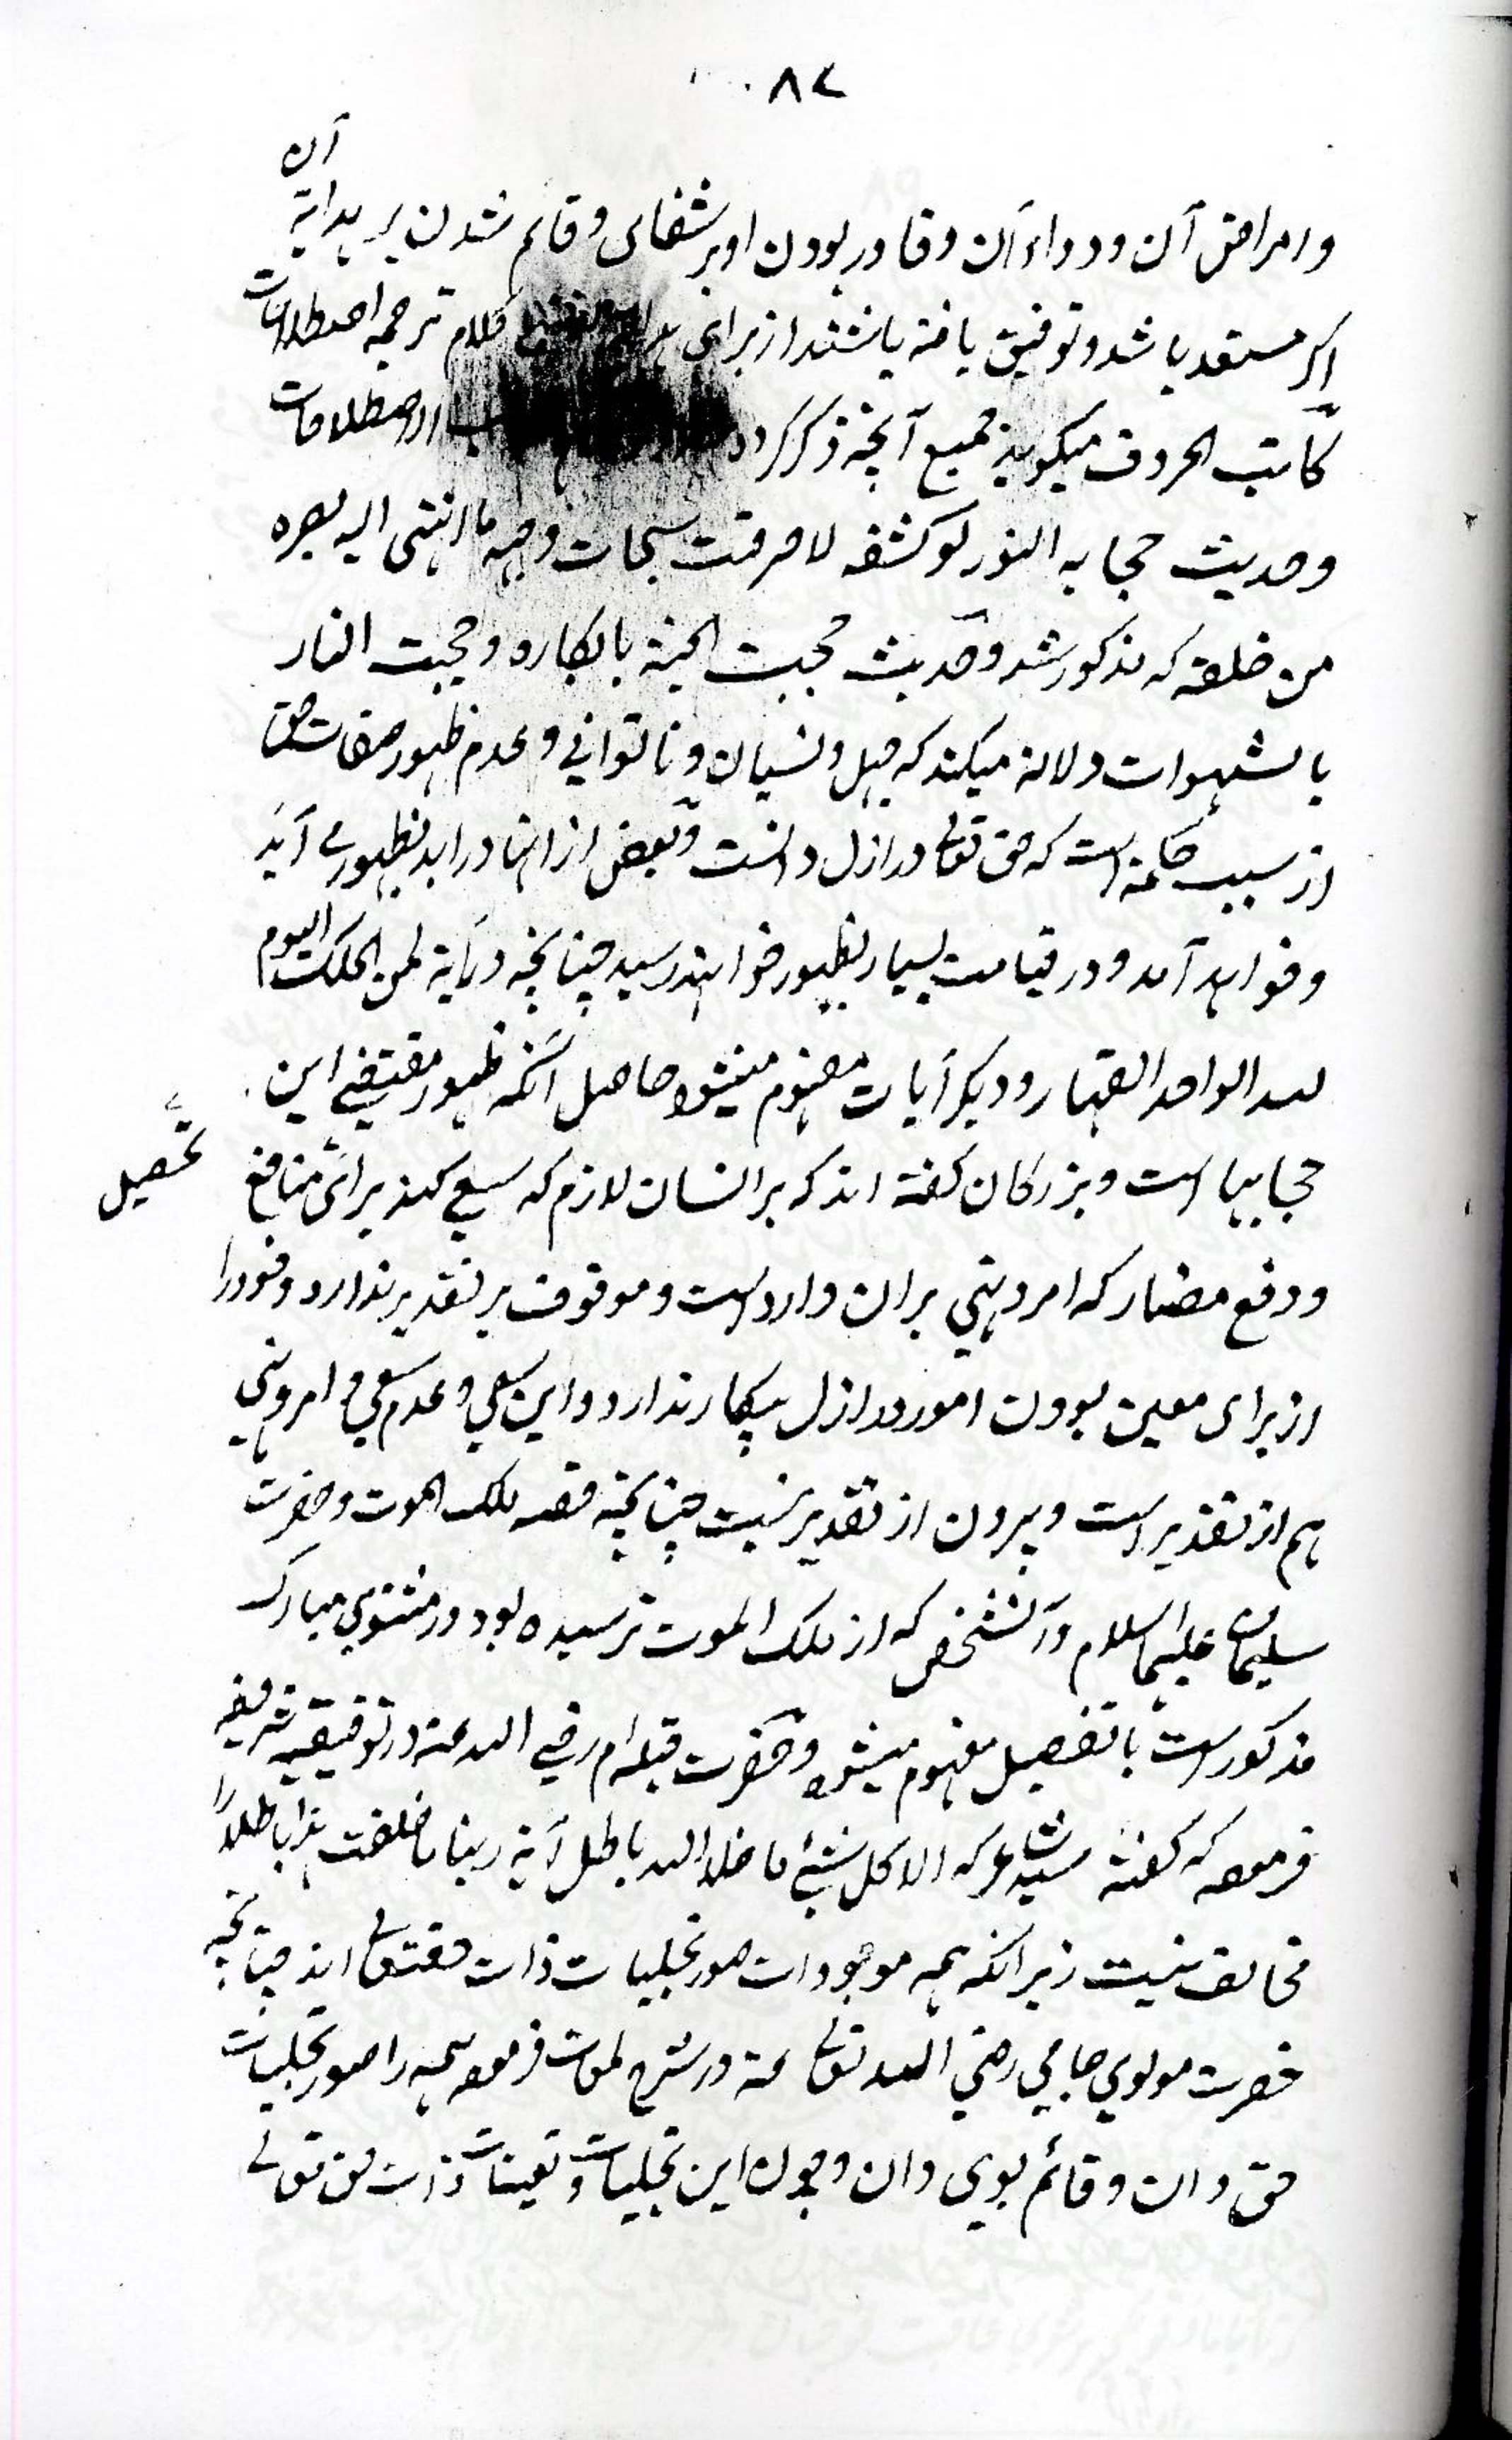 ۸۲
وامراض آن و دواء آن و قادر بودن او بر شفای و قائم شدن بر هدایة آن
اکر مستعد باشد و توفیق یافته باشند از برای کلام ترجمه اصطلاحات
کاتب الحروف میکوید جمیع آنچه ذکر کرد از اصطلاحات
و حدیث حجابه النور لو کشفه لاحرقت سبحات وجهه ما انتهی الیه بصره
من خلقه که مذکور شد و حدیث حجبت الجنة بالمکاره و حجبت النار
بالشهوات دلالة میکند که جهل و نسیان و ناتوانی و عدم ظهور صفات حق
از سبب حکمة است که حق تعالی در ازل دانست و بعض از انها در ابد بظهور می آید
و خواهد آمد و در قیامت بسیار بظهور خواهند رسید چنانچه در آیة لمن الملک الیوم
لله الواحد القهار و دیکر آیات مفهوم میشود حاصل آنکه ظهور مقتضی این
حجابها است و بزرکان کفته اند که بر انسان لازم که سعی کند برای تحصیل منافع
و دفع مضار که امر و نهی بران وارد است و موقوف بر تقدیر ندارد و خود را
از برای معین بودن امور در ازل بیکار ندارد و این سعی و عدم سعی و امر و نهی
هم از تقدیر است و بیرون از تقدیر نیست چنانچه قصه ملک الموت و حضرت
سلیمان علیهما السلام و آنشخص که از ملک الموت ترسیده بود در مثنوی مبارک
مذکور است با تفصیل مفهوم میشود و حضرت قبله ام رضی الله عنه در توفیقیه شریفه
فرموده که کفته شاعر که الا کل شیٔ ما خلا الله باطل آیة ربنا ما خلقت هذا باطلاً
مخالف نیست زیرا که همه موجودات صور تجلیات ذات حقتعالی اند چنانچه
حضرت مولوی جامی رضی الله تعالی عنه در شرح لمعات فرموده همه را صور تجلیات
حق دان و قائم بوی دان و چون این تجلیات و تعینات ذات حق تعالی